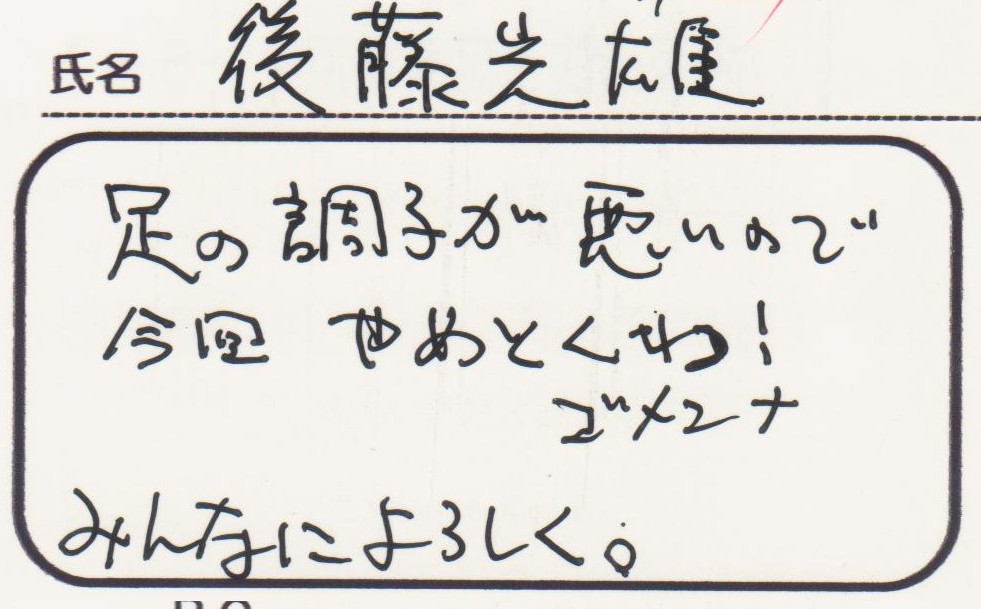 氏名 後藤光雄
足の調子が悪いので
今回 やめとくわ!
ゴメンナ
みんなによろしく。